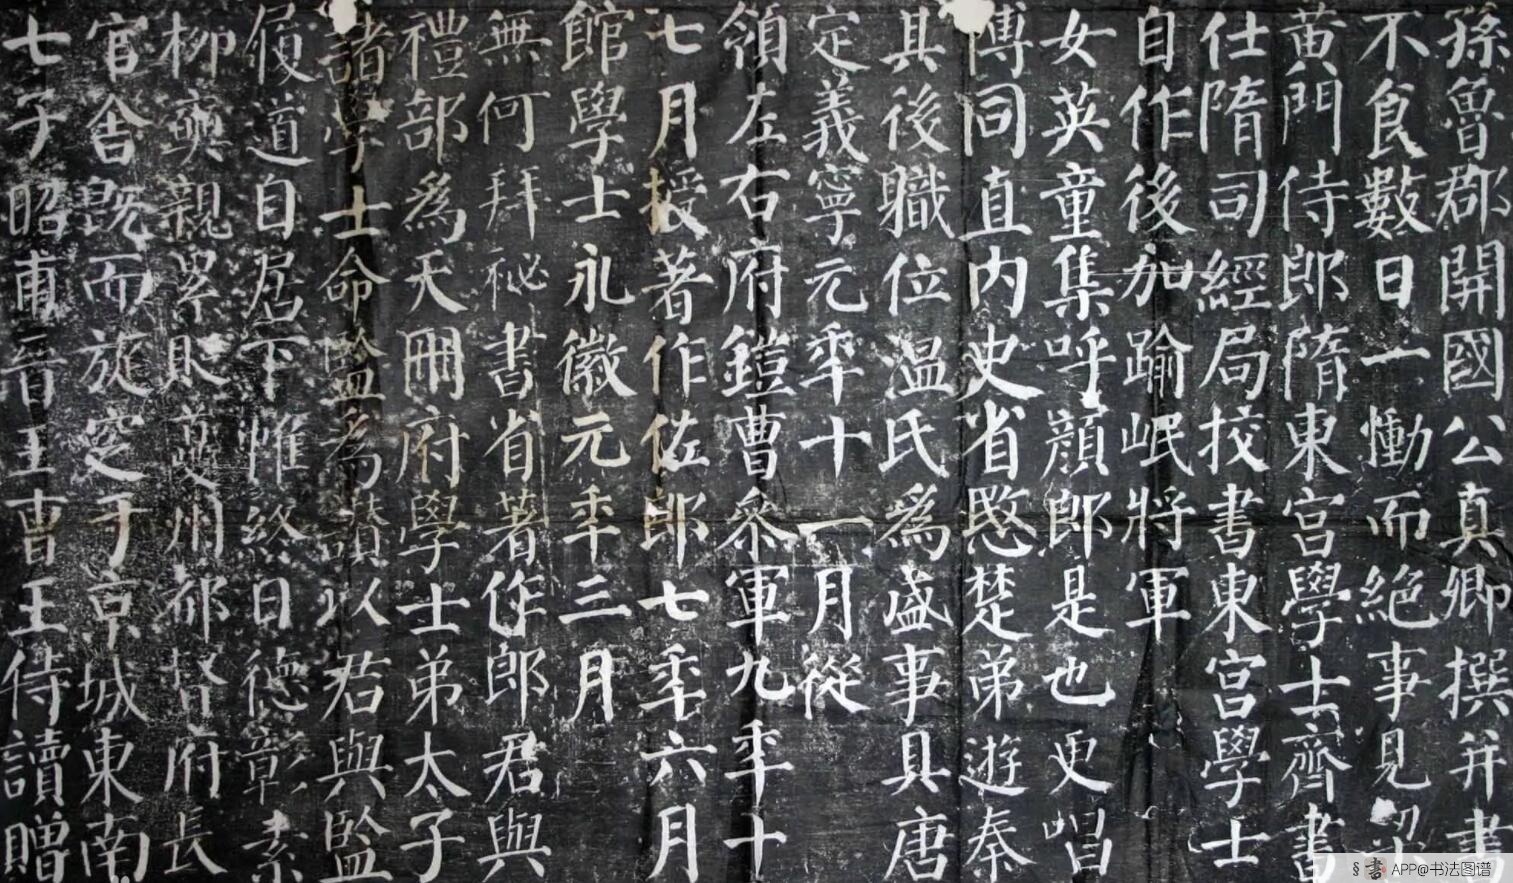 孫魯郡開國公真卿撰并書
不食數日一慟而絕事見梁
黄門侍郎隋東宮學士齊書
仕隋司經局校書東宮學士
自作後加踰岷將軍
女英童集呼顏郎是也更唱
博同直内史省愍楚弟遊秦
其後職位温氏爲盛事具唐
定義寧元年十一月從
領左右府鎧曹参軍九年十
七月授著作佐郎七年六月
館學士永徽元年三月
無何拜祕書省著作郎君與
禮部爲天冊府學士弟太子
諸學士命監爲讚以君與監
履道自居下帷終日德彰素
柳奭親累貶夔州都督府長
官舍既而旋窆于京城東南
七子昭甫晉王曹王侍讀贈
書 APP@书法图谱